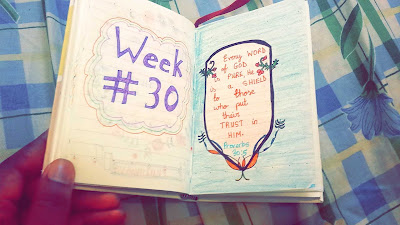 Week
#30
Every WORD
of GOD
is PURE, He
is a SHIELD
to those
who put
their
TRUST in
HIM.
Proverbs
30:5